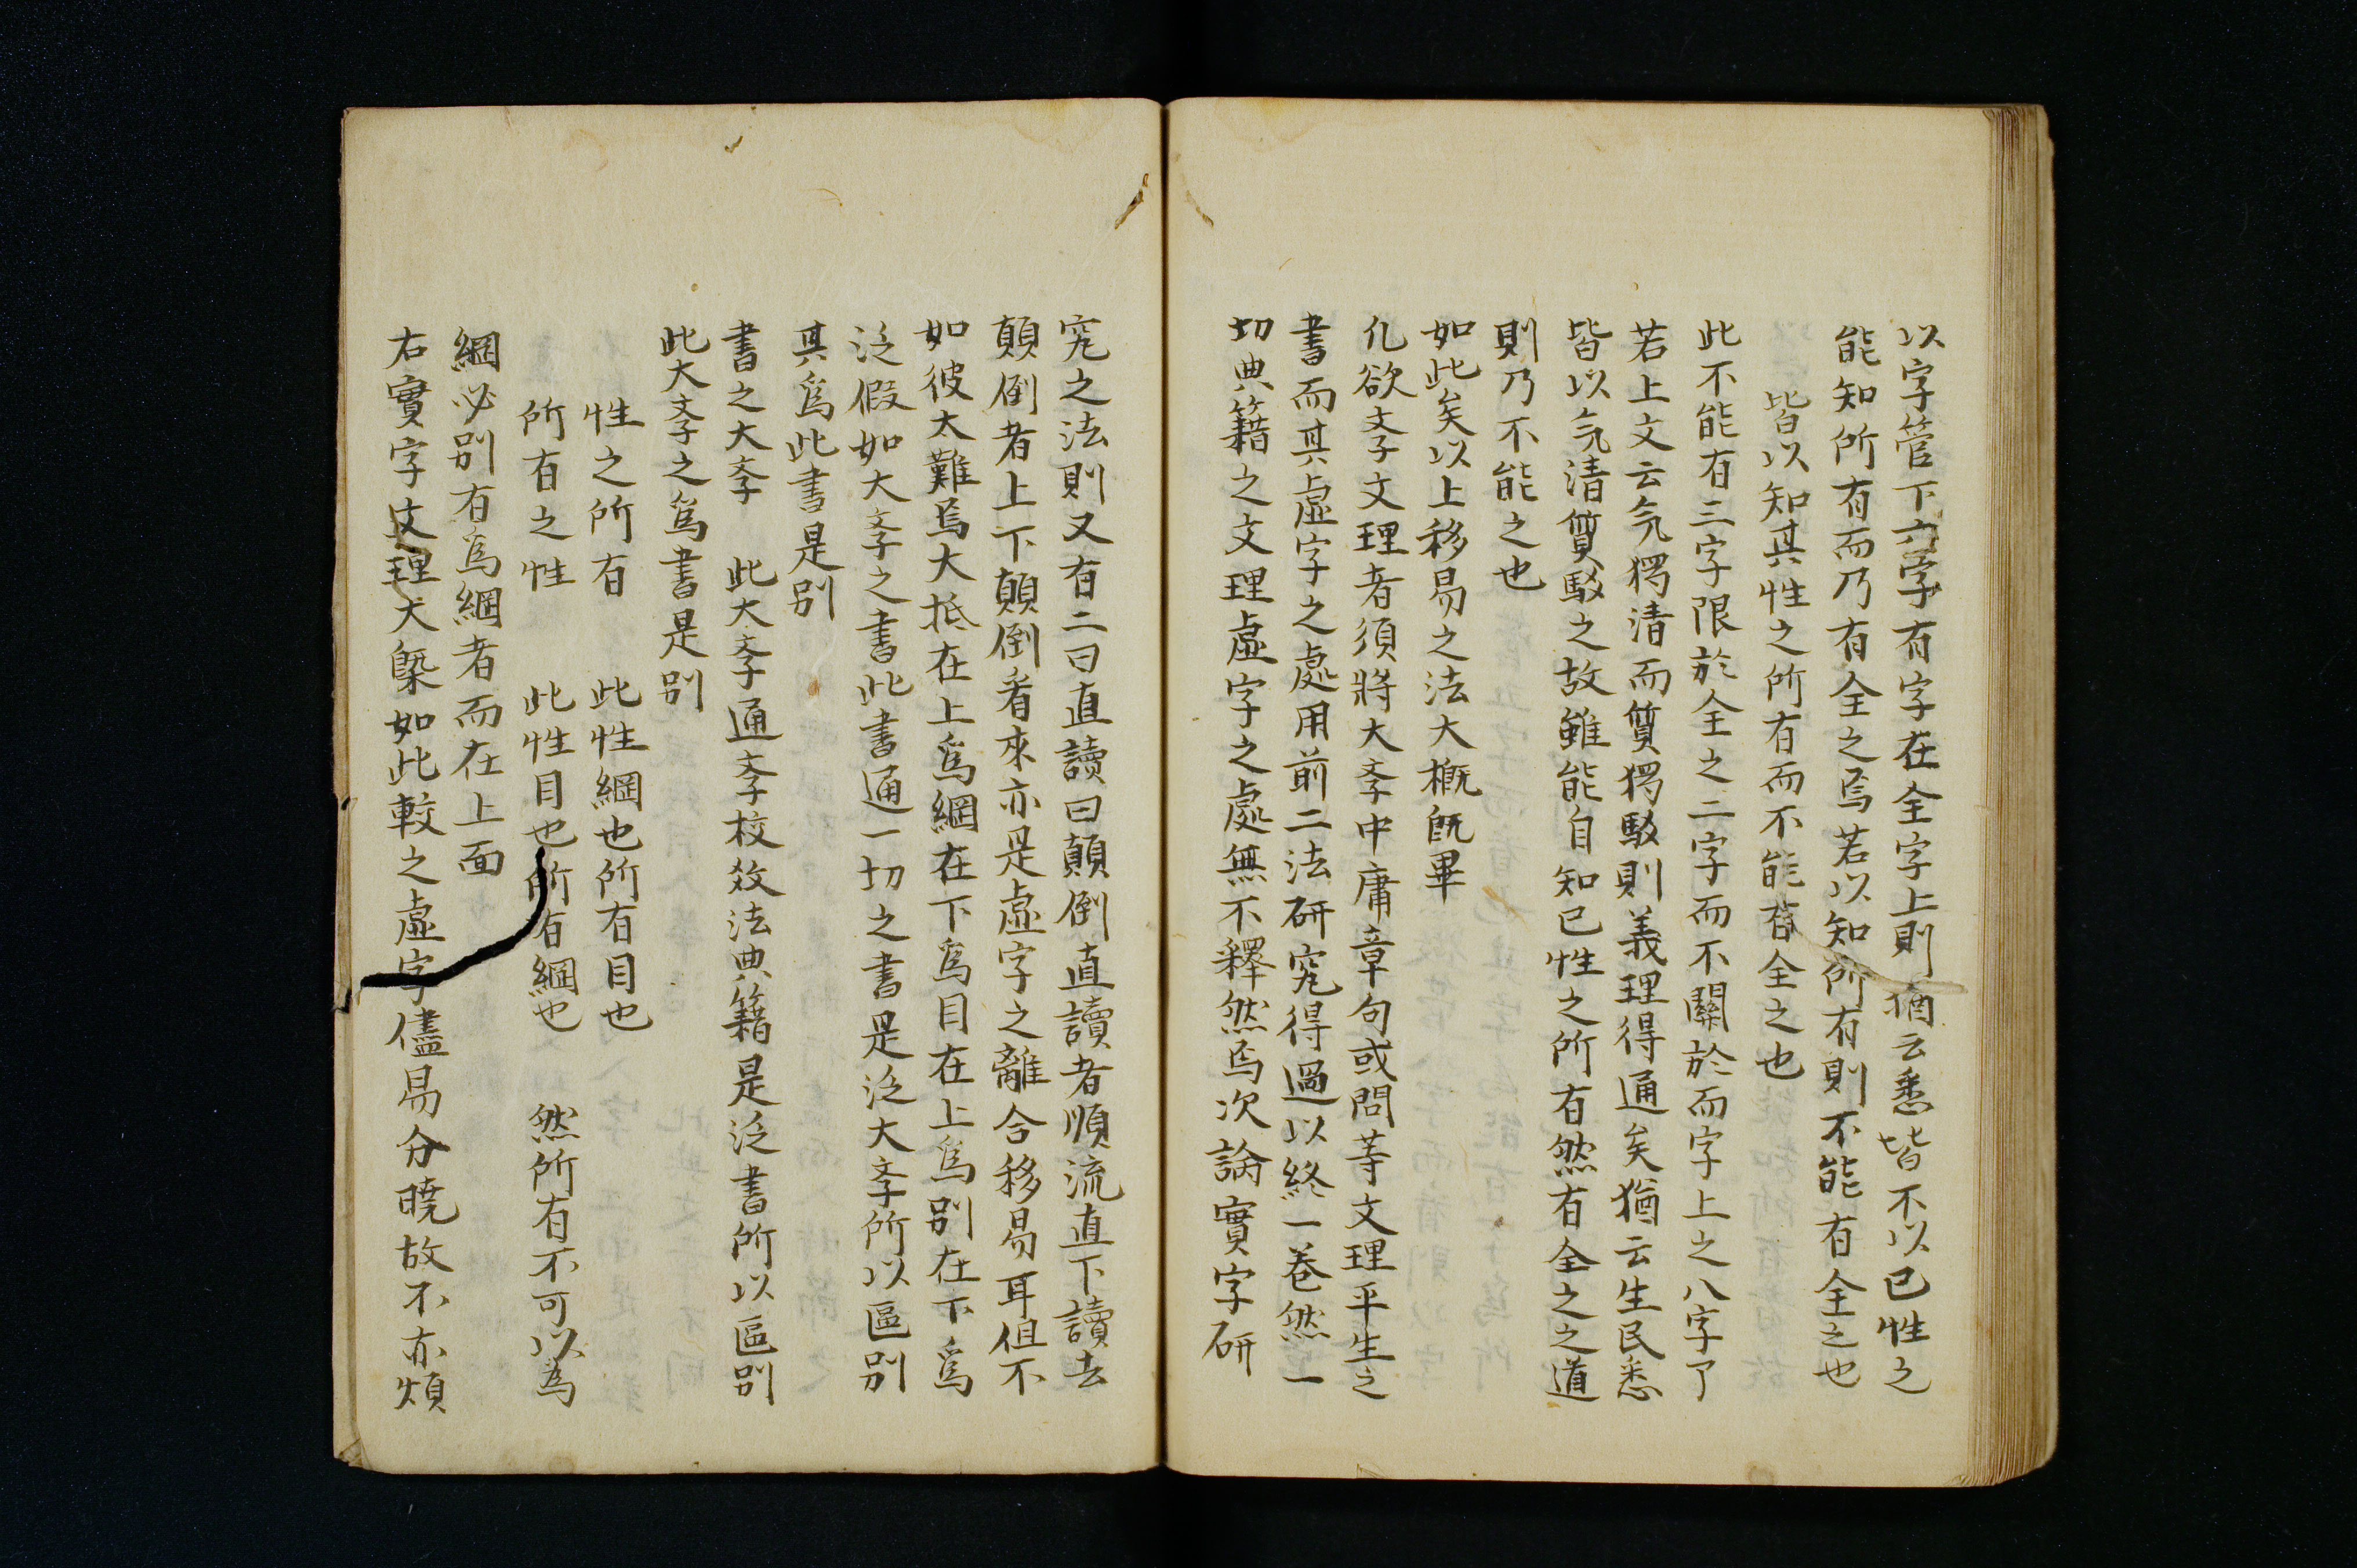 以字管下六字有字在全字上則猶云悉皆不以已性之
能知所有而乃有全之焉若以知所有則不能有全之也
皆以知其性之所有而不能有全之也
此不能有三字限於全之二字而不關於而字上之八字了
若上文云気獨清而質獨駁則義理得通矣猶云生民悉
皆以気清質駁之故雖能自知已性之所有然有全之之道
則乃不能之也
如此矣以上移易之法大概既畢
凡欲斈文理者須將大斈中庸章句或問等文理平生之
書而其虛字之處用前二法研究得過以終一卷然一
切典籍之文理虛字之處無不釋然焉次論實字研
究之法則又有二曰直讀曰顛倒直讀者順流直下讀去
顛倒者上下顛倒看來亦是虛字之離合移易耳但不
如彼太難焉大抵在上爲綱在下爲目在上爲別在下爲
泛假如大斈之書此書通一切之書是泛大斈所以區別
其爲此書是別
書之大斈 此大斈通斈校效法典籍是泛書所以區別
此大斈之爲書是別
性之所有 此性綱也所有目也
所有之性 此性目也所有綱也 然所有不可以為
綱必別有爲綱者而在上面
右實字文理大槩如此較之虛字儘易分曉故不亦煩